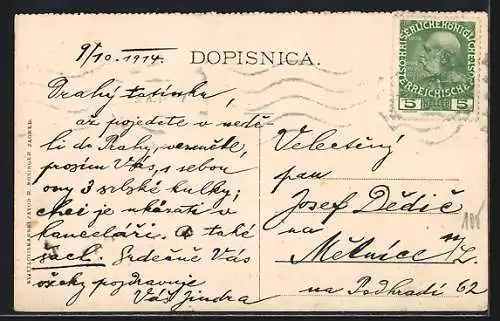 9/10. 1914.
DOPISNICA.
Drahý tatínku,
až pojedete v nedě-
li do Prahy, vezměte,
prosím Vás, s sebou
ony 3 srbské kulky;
chci je ukázati v
kanceláři. A také
šach. Srdečně Vás
všecky pozdravuje
Váš Jindra
Velectěný
pan
Josef Dědič
na
Mělníce n/L.
na Podhradí 62
KAISERLICHE KÖNIGLICHE
ÖSTERREICHISCHE
5 HELLER 5